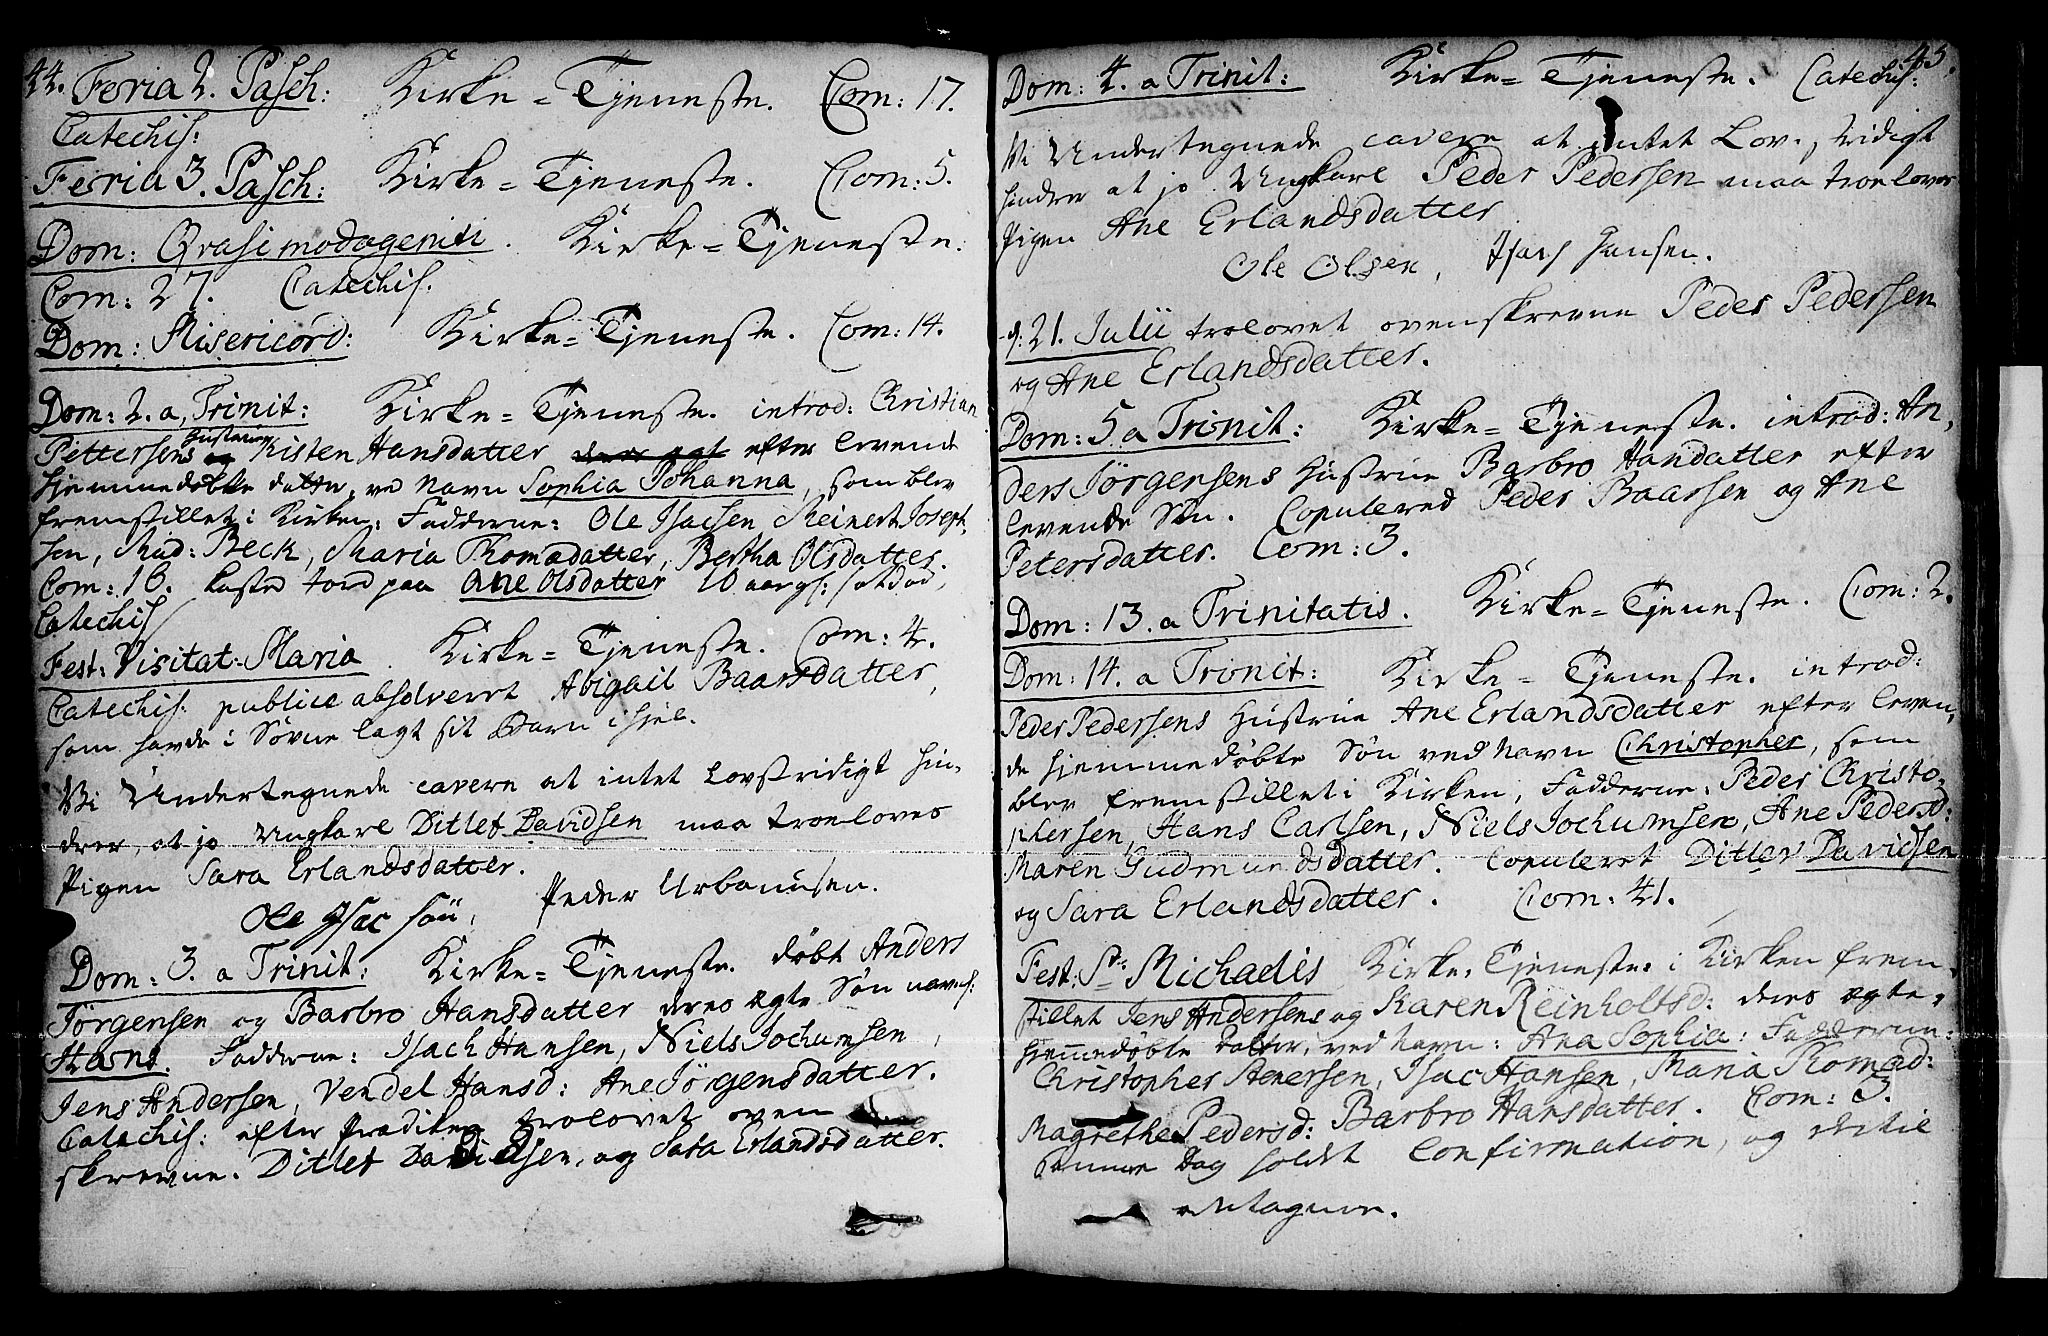 44. Feria 2. Pasch: Kirke=Tjeneste. Com: 17.
Catechis:
Feria 3. Pasch: Kirke=Tjeneste. Com: 5.
Dom: Qvasimodogeniti. Kirke=Tjeneste.
Com: 27. Catechis.
Dom: Misericord: Kirke=Tjeneste. Com: 14.
Dom: 2. a, Trinit: Kirke=Tjeneste. introd: Christian
Pettersens Hustrue Kisten Hansdatter efter levende
hjemmedøbte datter, ve Navn Sophia Johanna, som blev
fremstillet i Kirken: Fadderne: Ole Isacsen Meinert Joseph,
sen, Mad: Beck, Maria Thomadatter, Bertha Olsdatter.
Com: 16. kasted Jord paa Ane Olsdatter
Catechis
Fest: Visitat: Maria. Kirke=Tjeneste. Com: 4.
Catechis: publice absolveret Abigail Baarsdatter,
som havde i Søvne lagt sit Barn ihjel.
Vi Undertegnede cavere at intet Lovstridigt hin,
drer, at jo Ungkarl Ditlef Davidsen maa troeloves
Pigen Sara Erlandsdatter.
Ole Isac søn, Peder Urbanusen.
Dom: 3. a Trinit: Kirke=Tjeneste. døbt Anders
Jörgensen og Barbro Hansdatter deres ægte Søn navnl:
Hans. Fadderne: Isach Hansen, Niels Jochumsen,
Jens Andersen, Vendel Hansd: Ane Jörgensdatter.
Catechis: efter Prædiken trolovet oven
skrevne. Ditlef Davidsen, og Sara Erlandsdatter.
45.
Dom: 4. a Trinit: Kirke=Tjeneste. Catechis:
Vi Undertegnede cavere at intet Lov, stridigt
hindrer at jo Ungkarl Peder Pedersen maa troelover
Pigen Ane Erlandsdatter
Ole Olsen, Isach Hansen.
d: 21. Julii trolovet ovenskrevne Peder Pedersen
og Ane Erlandsdatter.
Dom: 5 a Trinit: Kirke=Tjeneste. introd: An,
ders Jörgensens Hustrue Barbro Handatter efter
levende Søn. Copulered Peder Baarsen og Ane
Petersdatter. Com: 3.
Dom: 13. a Trinitatis. Kirke=Tjeneste. Com: 2.
Dom: 14. a Trinit: Kirke=Tjeneste. introd:
Peder Pedersens Hustrue Ane Erlandsdatter efter leven,
de hjemmedøbte Søn ved Navn Christopher, som
blev fremstillet i Kirken, Fadderne: Peder Christo,
phersen, Hans Carlsen, Niels Jochumsen, Ane Pedersd:
Maren Gudmundsdatter. Copuleret Ditlev Davidsen
og Sara Erlandsdatter. Com. 41.
Fest: St: Michaelis Kirke=Tjeneste: i Kirken frem,
stillet Jens Andersens og Karen Reinholtsd: deres ægte,
hjemmedøbte Datter, ved Navn: Ana Sophia: Fadderne:
Christopher Stenersen, Isac Hansen, Maria Thomad:
Magrethe Pedersd: Barbro Hansdatter. Com: 3.
samme Dag holdt Confirmation, og dertil
antagne.